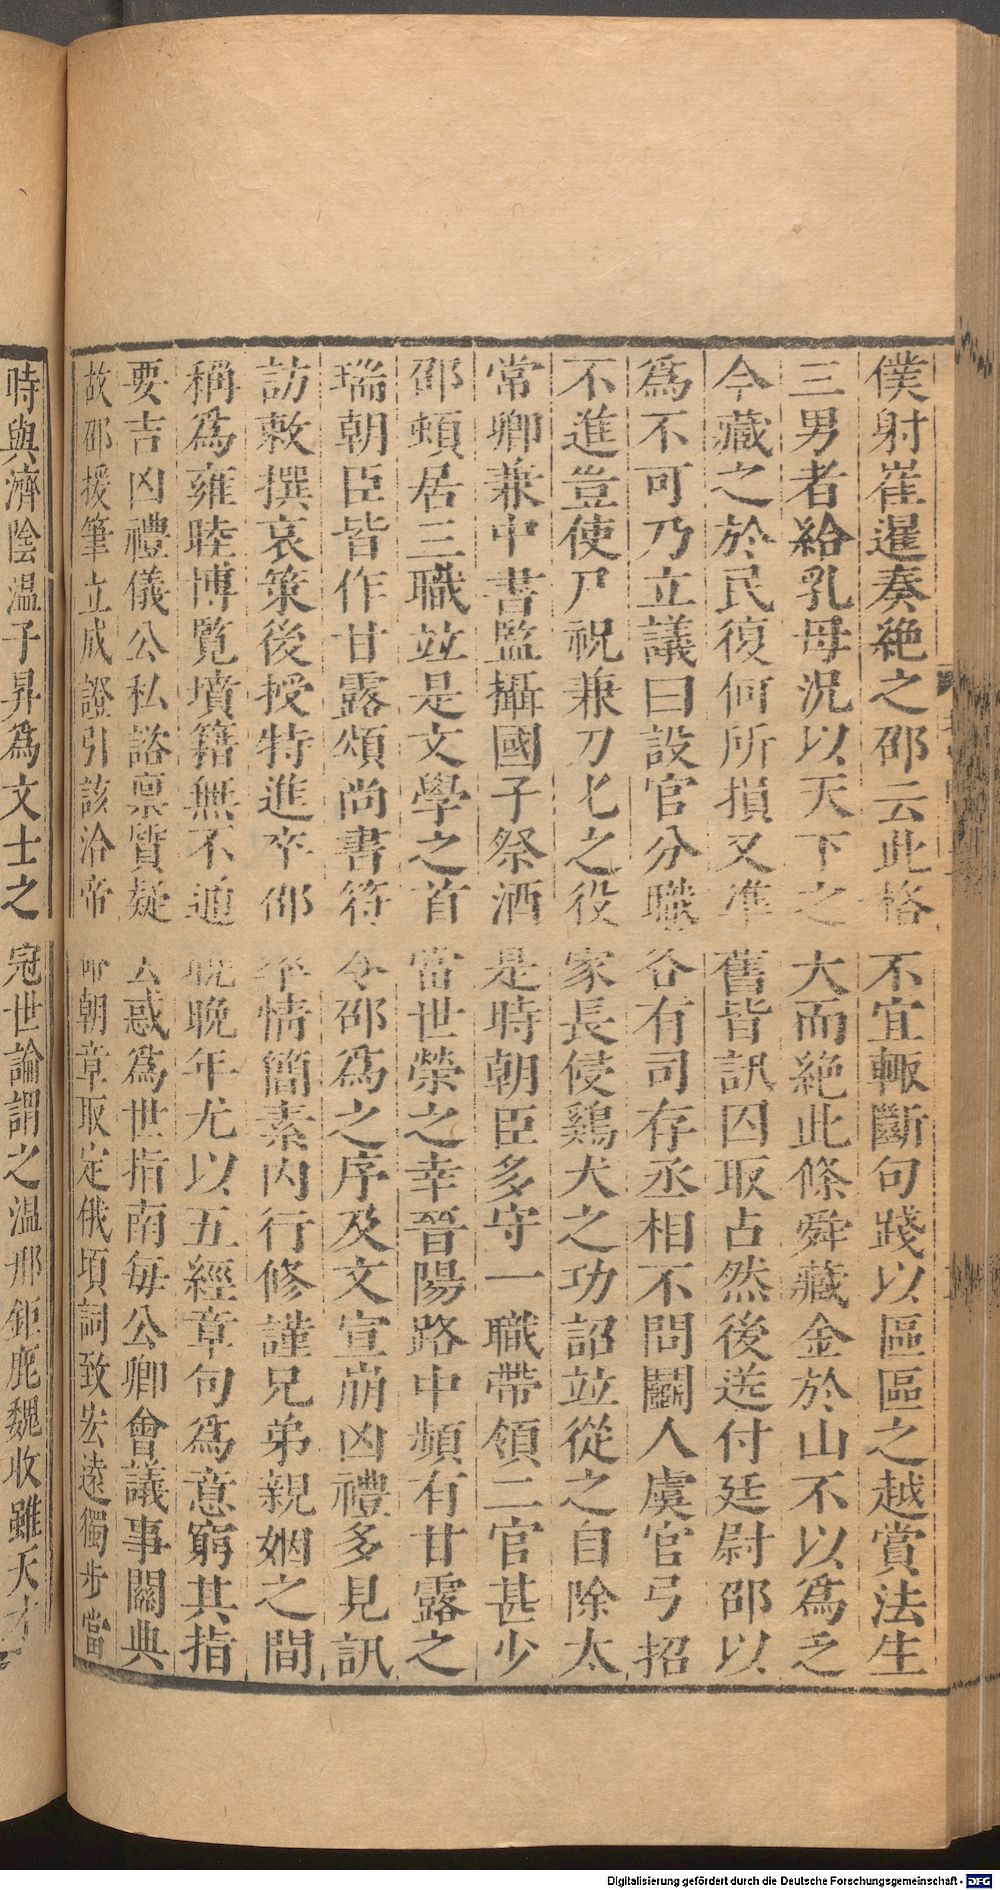 僕射崔暹奏絶之邵云此格不宜輒斷句踐以區區之越賞法生
三男者給乳母況以天下之大而絶此條舜藏金於山不以爲乏
今藏之於民復何所損又准舊皆訊囚取占然後送付廷尉邵以
爲不可乃立議曰設官分職各有司存丞相不問鬬人虞官弓招
不進豈使尸祝兼刀匕之役家長侵鷄犬之功詔竝從之自除太
常卿兼中書監攝國子祭酒是時朝臣多守一職帶領二官甚少
邵頻居三職竝是文學之首當世榮之幸晉陽路中頻有甘露之
瑞朝臣皆作甘露頌尚書符令邵爲之序及文宣崩凶禮多見訊
訪敕撰哀策後授特進卒邵率情簡素內行修謹兄弟親姻之間
稱爲雍睦博覽墳籍無不通曉晚年尤以五經章句爲意窮其指
要吉凶禮儀公私諮稟質疑去惑爲世指南每公卿會議事關典
故邵援筆立成證引該洽帝命朝章取定俄頃詞致宏遠獨步當
時與濟陰溫子昇爲文士之冠世論謂之溫邢鉅鹿魏收雖天才
Digitalisierung gefördert durch die Deutsche Forschungsgemeinschaft - DFG